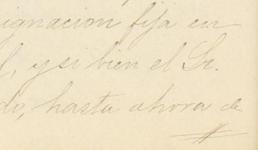 ignacion fija en
, y si bien el Sr.
do, hasta ahora de